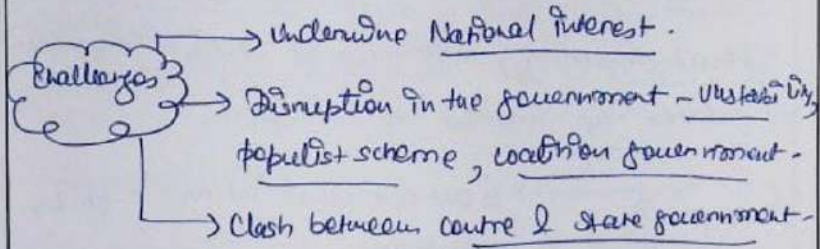 Challenges
→ Undermine National interest.
→ Disruption in the government - Unstability,
populist scheme, coalition government.
→ Clash between centre & state government.